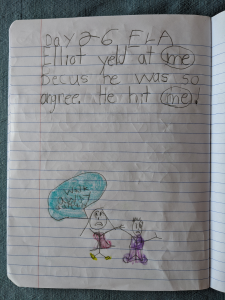 Day 26 FLA
Elliot yeld at me
Becus he was so
angree. He hit me!